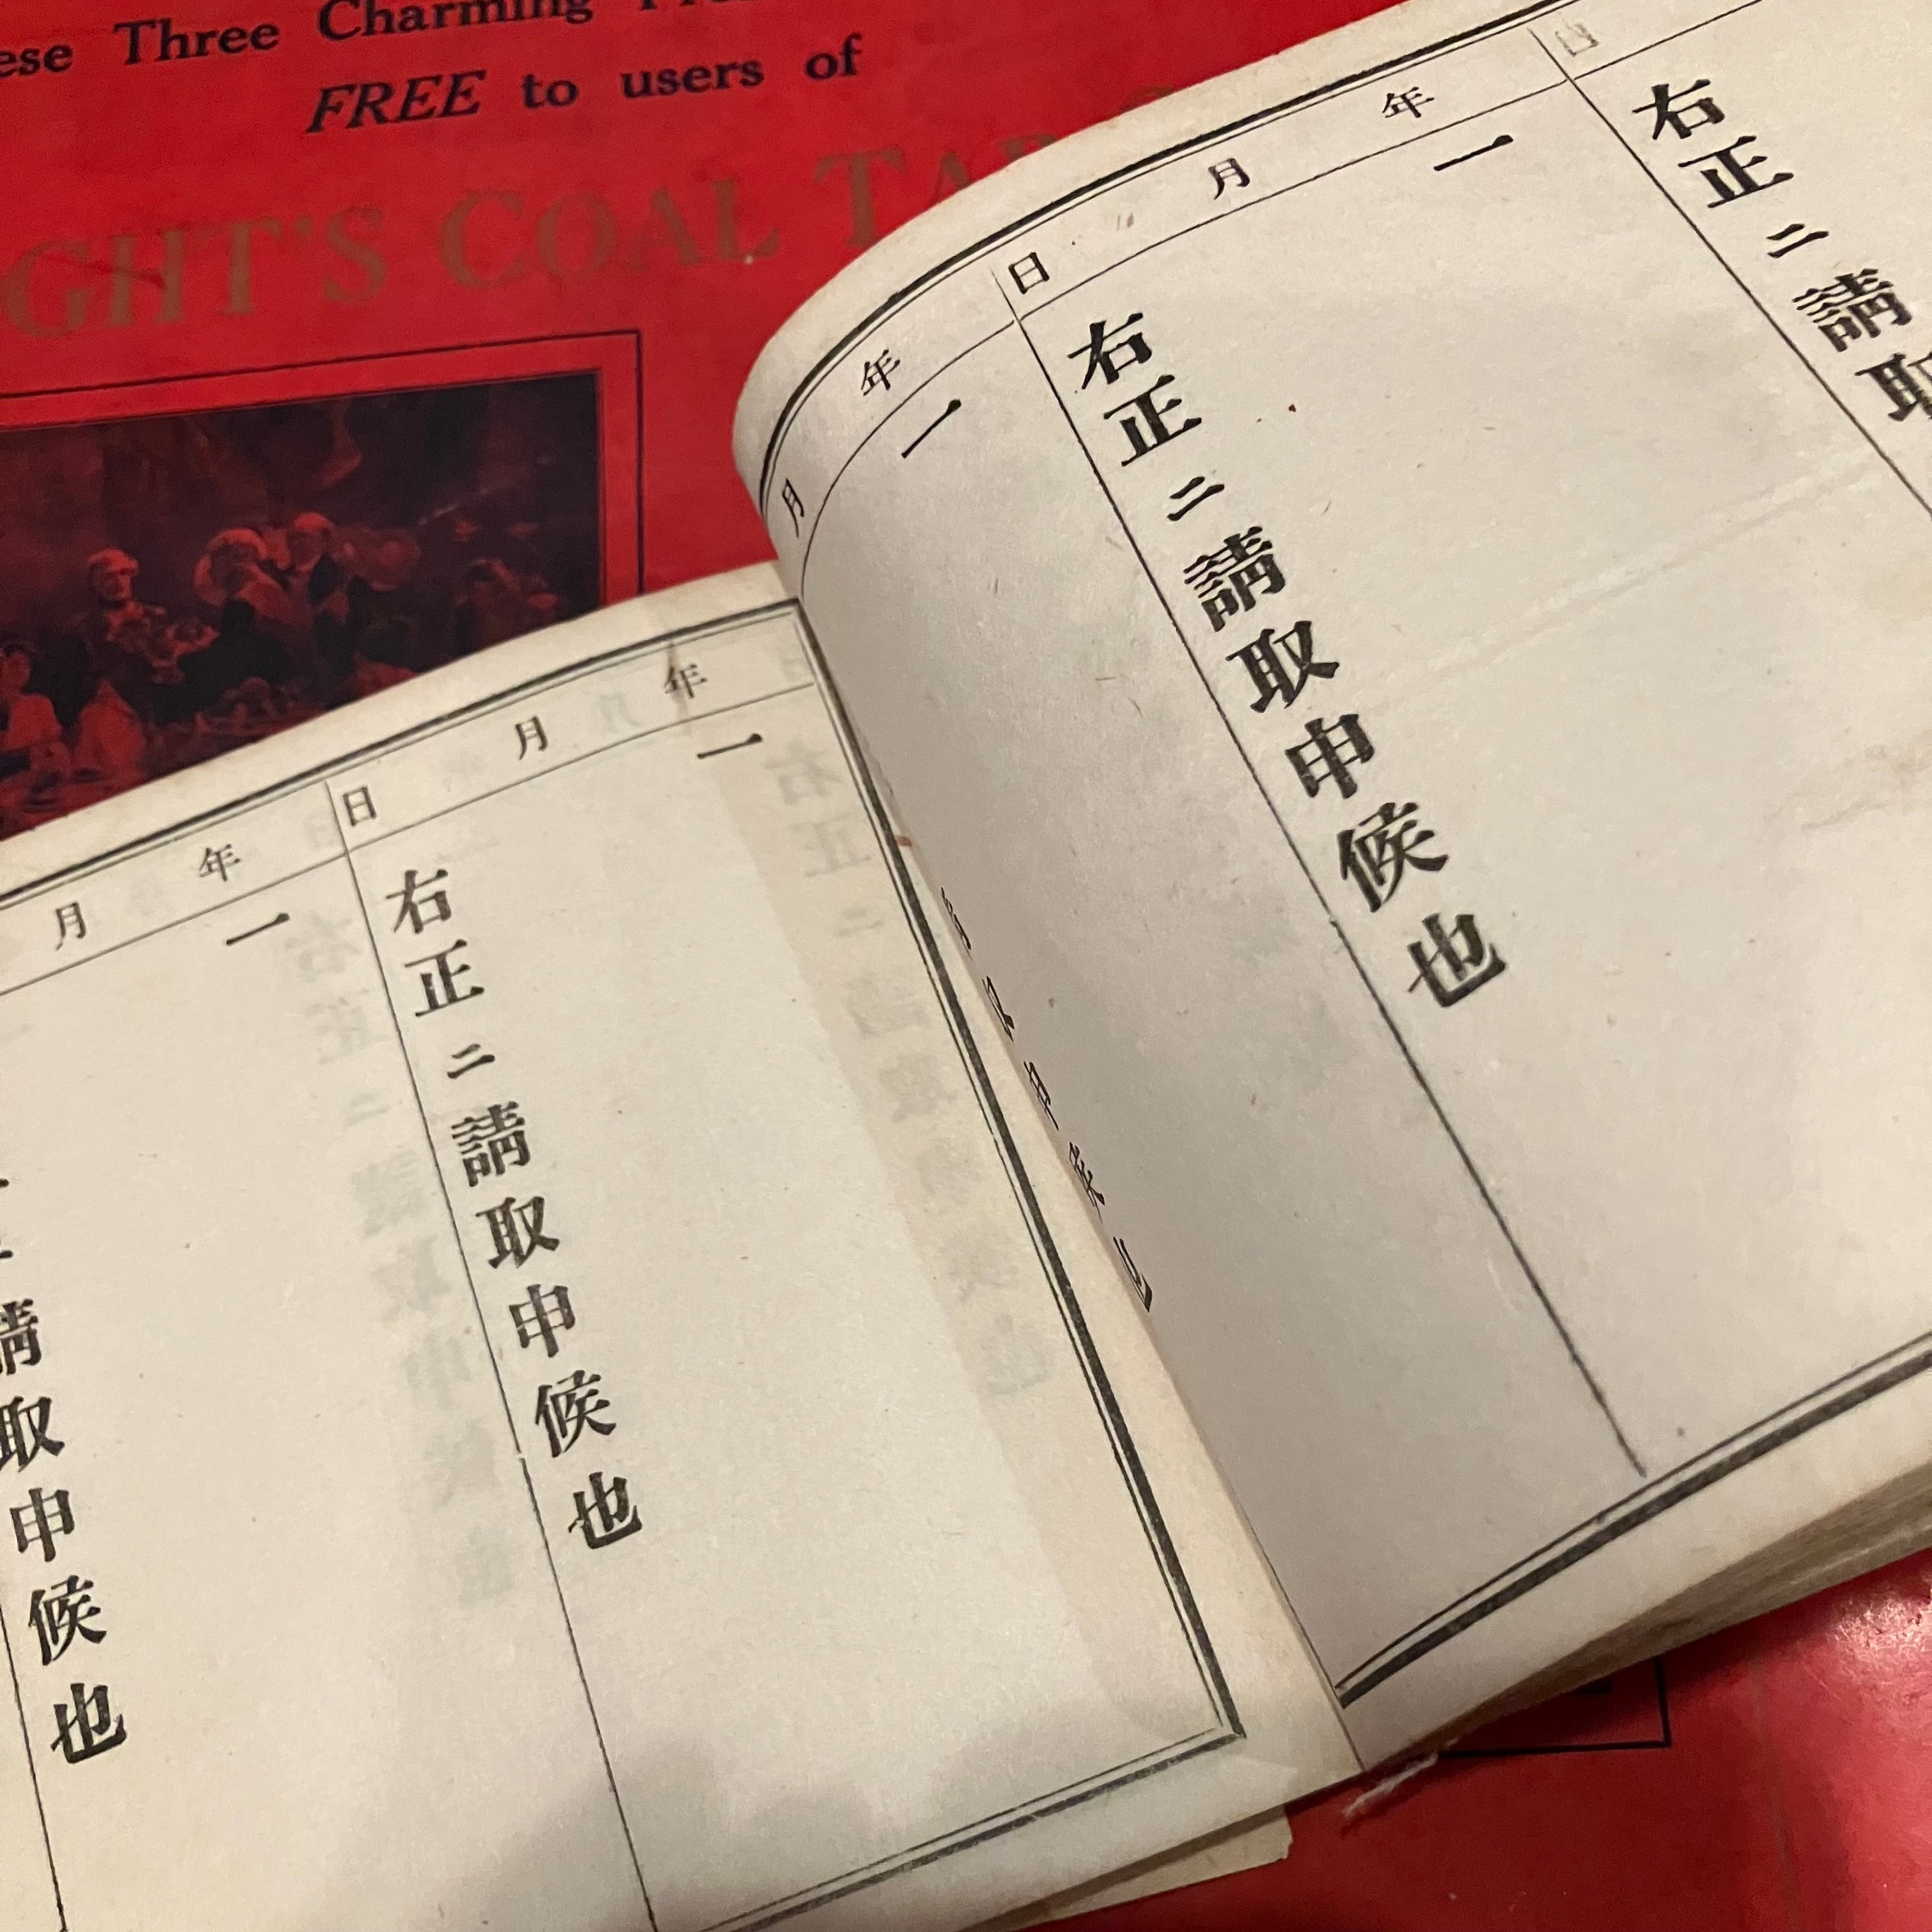 Three Charming
FREE to users of
GHT'S COAL TAR
右正ニ請取申候也
年 月 日
一
右正ニ請取申候也
年 月
一
年 月 日
一
右正ニ請取申候也
年 月
一
請取申候也